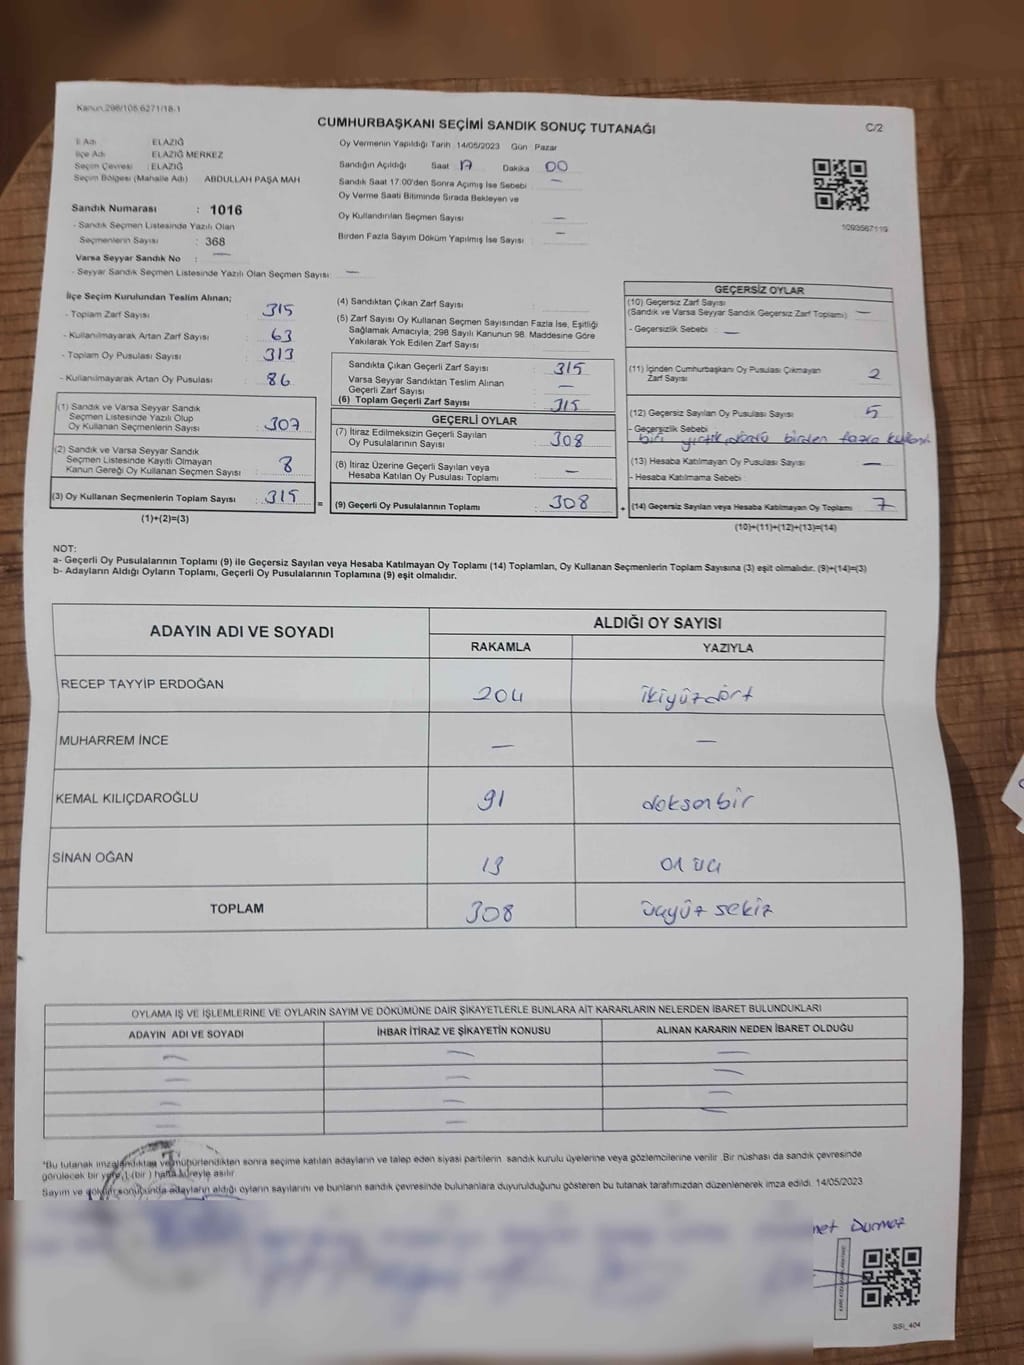 Kanun 298/105,6271/18-1
CUMHURBAŞKANI SEÇİMİ SANDIK SONUÇ TUTANAĞI
C/2
İl Adı ELAZIĞ
İlçe Adı ELAZIĞ MERKEZ
Seçim Çevresi : ELAZIĞ
Seçim Bölgesi (Mahalle Adı) ABDULLAH PAŞA MAH
Sandık Numarası : 1016
- Sandık Seçmen Listesinde Yazılı Olan
Seçmenlerin Sayısı : 368
Varsa Seyyar Sandık No : —
- Seyyar Sandık Seçmen Listesinde Yazılı Olan Seçmen Sayısı: —
Oy Vermenin Yapıldığı Tarih 14/05/2023 Gün Pazar
Sandığın Açıldığı Saat 17 Dakika 00
Sandık Saat 17:00'den Sonra Açımış İse Sebebi —
Oy Verme Saati Bitiminde Sırada Bekleyen ve
Oy Kullandırılan Seçmen Sayısı —
Birden Fazla Sayım Döküm Yapılmış İse Sayısı : —
1093567119
İlçe Seçim Kurulundan Teslim Alınan;
- Toplam Zarf Sayısı : 315
- Kullanılmayarak Artan Zarf Sayısı : 63
- Toplam Oy Pusulası Sayısı : 313
- Kullanılmayarak Artan Oy Pusulası : 86
(1) Sandık ve Varsa Seyyar Sandık
Seçmen Listesinde Yazılı Olup
Oy Kullanan Seçmenlerin Sayısı : 307
(2) Sandık ve Varsa Seyyar Sandık
Seçmen Listesinde Kayıtlı Olmayan
Kanun Gereği Oy Kullanan Seçmen Sayısı : 8
(3) Oy Kullanan Seçmenlerin Toplam Sayısı : 315
(1)+(2)=(3)
(4) Sandıktan Çıkan Zarf Sayısı :
(5) Zarf Sayısı Oy Kullanan Seçmen Sayısından Fazla İse, Eşitliği
Sağlamak Amacıyla, 298 Sayılı Kanunun 98. Maddesine Göre
Yakılarak Yok Edilen Zarf Sayısı :
Sandıkta Çıkan Geçerli Zarf Sayısı : 315
Varsa Seyyar Sandıktan Teslim Alınan
Geçerli Zarf Sayısı : —
(6) Toplam Geçerli Zarf Sayısı : 315
GEÇERLİ OYLAR
(7) İtiraz Edilmeksizin Geçerli Sayılan
Oy Pusulalarının Sayısı : 308
(8) İtiraz Üzerine Geçerli Sayılan veya
Hesaba Katılan Oy Pusulası Toplamı : —
= (9) Geçerli Oy Pusulalarının Toplamı : 308
GEÇERSİZ OYLAR
(10) Geçersiz Zarf Sayısı
(Sandık ve Varsa Seyyar Sandık Geçersiz Zarf Toplamı) : —
- Geçersizlik Sebebi : —
(11) İçinden Cumhurbaşkanı Oy Pusulası Çıkmayan
Zarf Sayısı : 2
(12) Geçersiz Sayılan Oy Pusulası Sayısı : 5
- Geçersizlik Sebebi
biri yırtık, dördü birden fazla
(13) Hesaba Katılmayan Oy Pusulası Sayısı : —
- Hesaba Katılmama Sebebi :
+ (14) Geçersiz Sayılan veya Hesaba Katılmayan Oy Toplamı 7
(10)+(11)+(12)+(13)=(14)
NOT:
a- Geçerli Oy Pusulalarının Toplamı (9) ile Geçersiz Sayılan veya Hesaba Katılmayan Oy Toplamı (14) Toplamları, Oy Kullanan Seçmenlerin Toplam Sayısına (3) eşit olmalıdır. (9)+(14)=(3)
b- Adayların Aldığı Oyların Toplamı, Geçerli Oy Pusulalarının Toplamına (9) eşit olmalıdır.
ADAYIN ADI VE SOYADI
ALDIĞI OY SAYISI
RAKAMLA YAZIYLA
RECEP TAYYİP ERDOĞAN 204 ikiyüzdört
MUHARREM İNCE — —
KEMAL KILIÇDAROĞLU 91 doksanbir
SİNAN OĞAN 13 on üç
TOPLAM 308 üçyüz sekiz
OYLAMA İŞ VE İŞLEMLERİNE VE OYLARIN SAYIM VE DÖKÜMÜNE DAİR ŞİKAYETLERLE BUNLARA AİT KARARLARIN NELERDEN İBARET BULUNDUKLARI
ADAYIN ADI VE SOYADI İHBAR İTİRAZ VE ŞİKAYETİN KONUSU ALINAN KARARIN NEDEN İBARET OLDUĞU
— — —
— — —
— — —
— — —
*Bu tutanak imzalandıktan ve mühürlendikten sonra seçime katılan adayların ve talep eden siyasi partilerin sandık kurulu üyelerine veya gözlemcilerine verilir. Bir nüshası da sandık çevresinde
görülecek bir yere, 1 (bir) hafta süreyle asılır.
Sayım ve döküm sonucunda adayların aldığı oyların sayılarını ve bunların sandık çevresinde bulunanlara duyurulduğunu gösteren bu tutanak tarafımızdan düzenlenerek imza edildi. 14/05/2023
net Durmaz
SSI_404